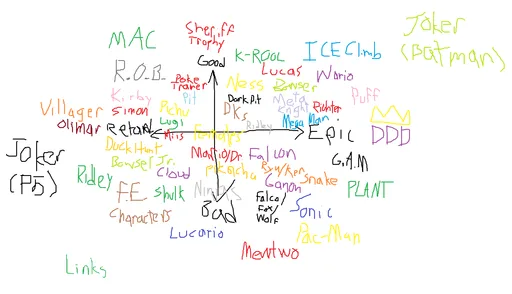 Sheriff
Trophy
Joker
(Batman)
MAC
Good
K-ROOL
ICE Climb
R.O.B.
Poke
Trainer
Ness
Lucas
Wario
Bowser
Kirby
Pit
Dark Pit
Meta
Knight
Puff
Villager
Simon
Pichu
DKs
Richter
Olimar
Retard
Lugi
Ridley
Mega Man
Miis
Females
Epic
DDD
Joker
(P5)
Duck Hunt
Mario/Dr.
Falcon
G.A.M
Bowser Jr.
Pikachu
Ryu/Ken
Ridley
Cloud
Ganon
Snake
PLANT
F.E
Characters
Shulk
Bad
Falco/
Fox/
Wolf
Sonic
Lucario
Pac-Man
Mewtwo
Links